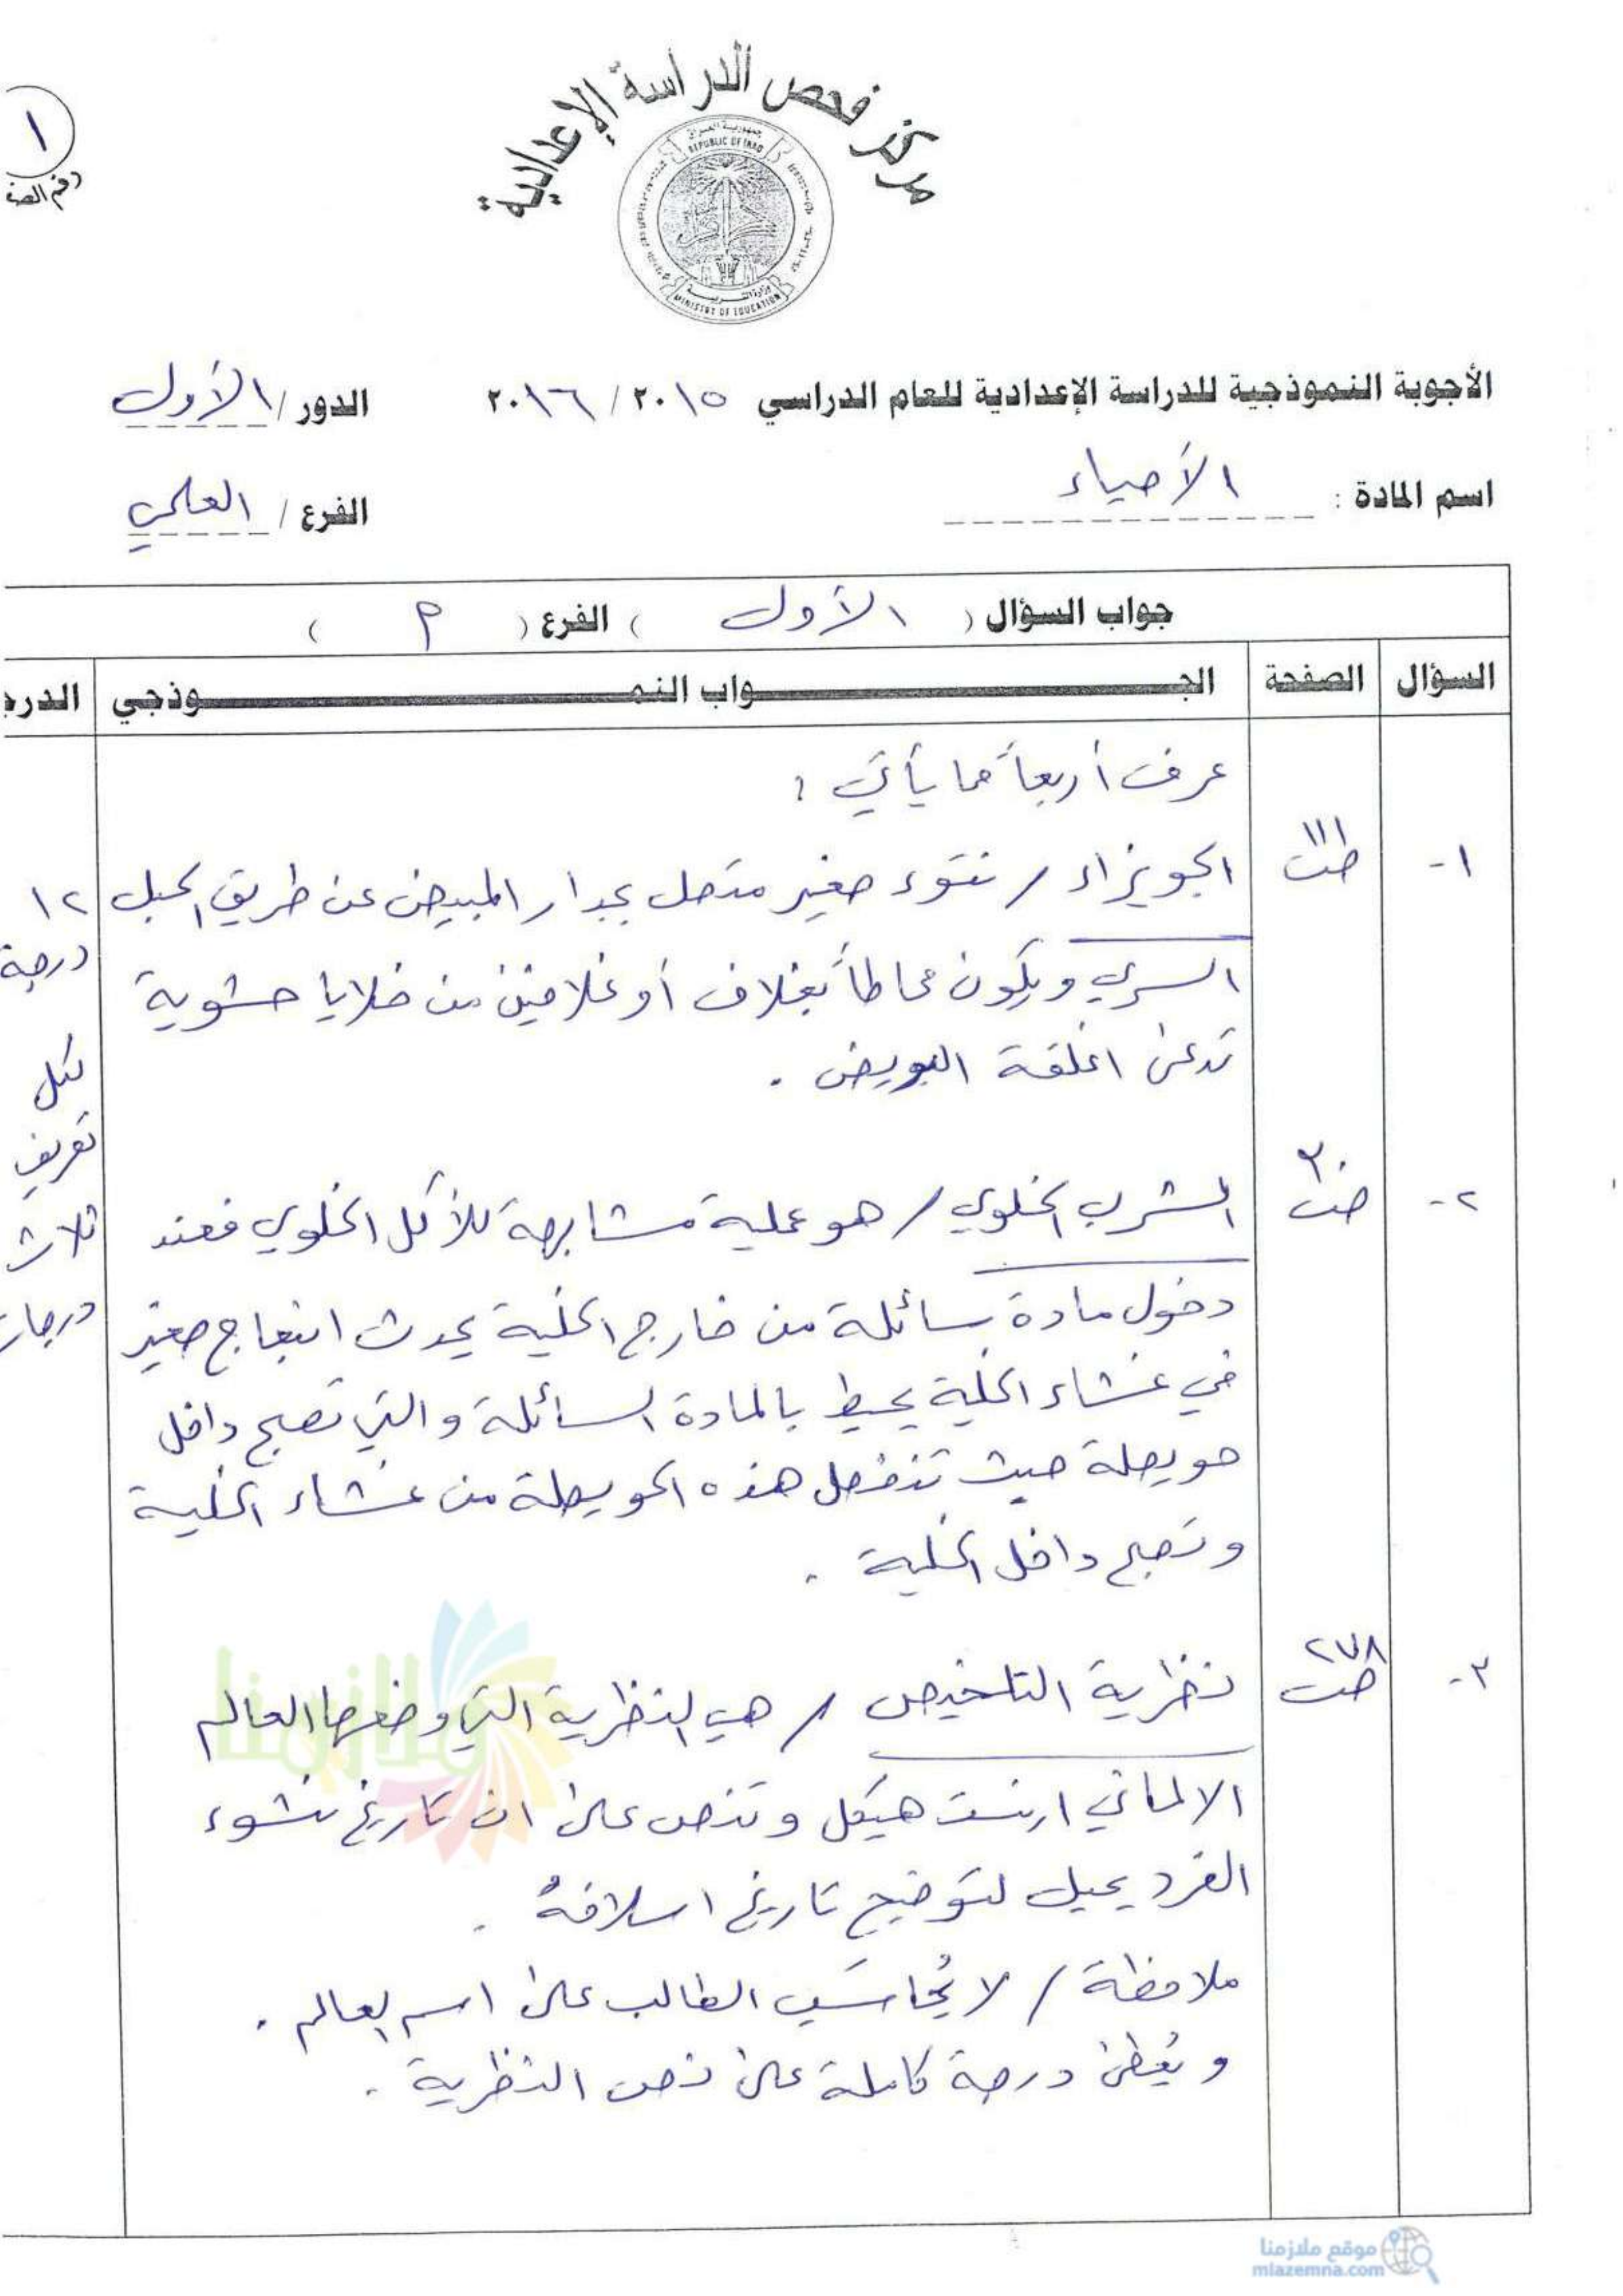 ١
رقم الصف
مركز فحص الدراسة الإعدادية
جمهورية العراق
REPUBLIC OF IRAQ
وزارة التربية
MINISTRY OF EDUCATION
الأجوبة النموذجية للدراسة الإعدادية للعام الدراسي ٢٠١٥ / ٢٠١٦ الدور / الأول
اسم المادة : الأحياء الفرع / العلمي
جواب السؤال ( الأول ) الفرع ( م )
السؤال الصفحة الجـــــواب النمـــــوذجي الدرج
عرف أربعاً مما يأتي :
١- ص١١١ الجويزاء / نتوء صغير متصل بجدار المبيض عن طريق الحبل ١٢
درجة
السري ويكون محاطاً بغلاف أو غلافين من خلايا حشوية
تدعى اغلفة البويض .
لكل
تعريف
ثلاث
درجات
٢- ص٣٠ الشرب الخلوي / هو عملية مشابهة للأكل الخلوي فعند
دخول مادة سائلة من خارج الخلية يحدث انبعاج صغير
في غشاء الخلية يحيط بالمادة السائلة والتي تصبح داخل
حويصلة حيث تنفصل هذه الحويصلة من غشاء الخلية
وتصبح داخل الخلية .
٣- ص٢٧٨ نظرية التلخيص / هي النظرية التي وضعها العالم
الالماني ارنست هيكل وتنص على ان تاريخ نشوء
الفرد يميل لتوضيح تاريخ اسلافهُ .
ملاحظة / لا يُحاسَب الطالب على اسم العالم .
ويُعطى درجة كاملة على نص النظرية .
ملازمنا
موقع ملازمنا
mlazemna.com